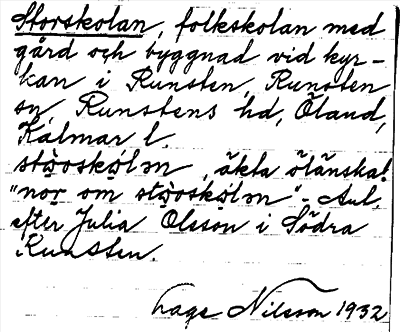 Storskolan, folkskolan med
gård och byggnad vid kyr-
kan i Runsten, Runsten
sn, Runstens hd, Öland,
Kalmar l.
störoskölm, äkta öländska!
"nor om störoskölm" - Aul.
efter Julia Olsson i Södra
Runsten.
Lage Nilsson 1932